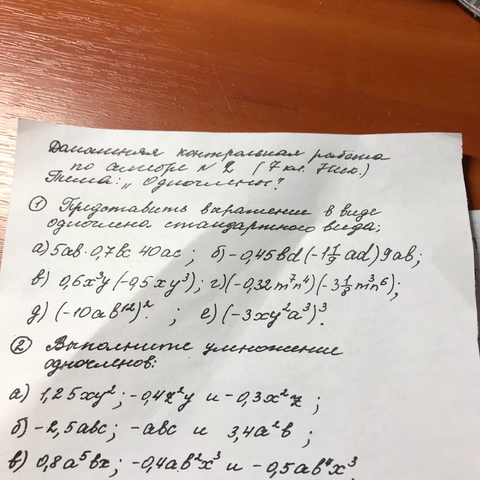 Домашняя контрольная работа
по алгебре №2 (7 кл.)
Тема: „Одночлены"
① Представить выражение в виде
одночлена стандартного вида:
а) 5ab·0,7bc·40ac; б) -0,45bd(-1 1/9 ad)9ab;
в) 0,6x³y(-0,5xy³); г) (-0,32m⁷n⁴)(-3 1/8 m³n⁶);
д) (-10ab¹²)²; е) (-3xy²a³)³.
② Выполните умножение
одночленов:
а) 1,25xy²; -0,4z²y и -0,3x²z;
б) -2,5abc; -abc и 3,4a²b;
в) 0,8a⁵bx; -0,4ab²x³ и -0,5ab⁴x³